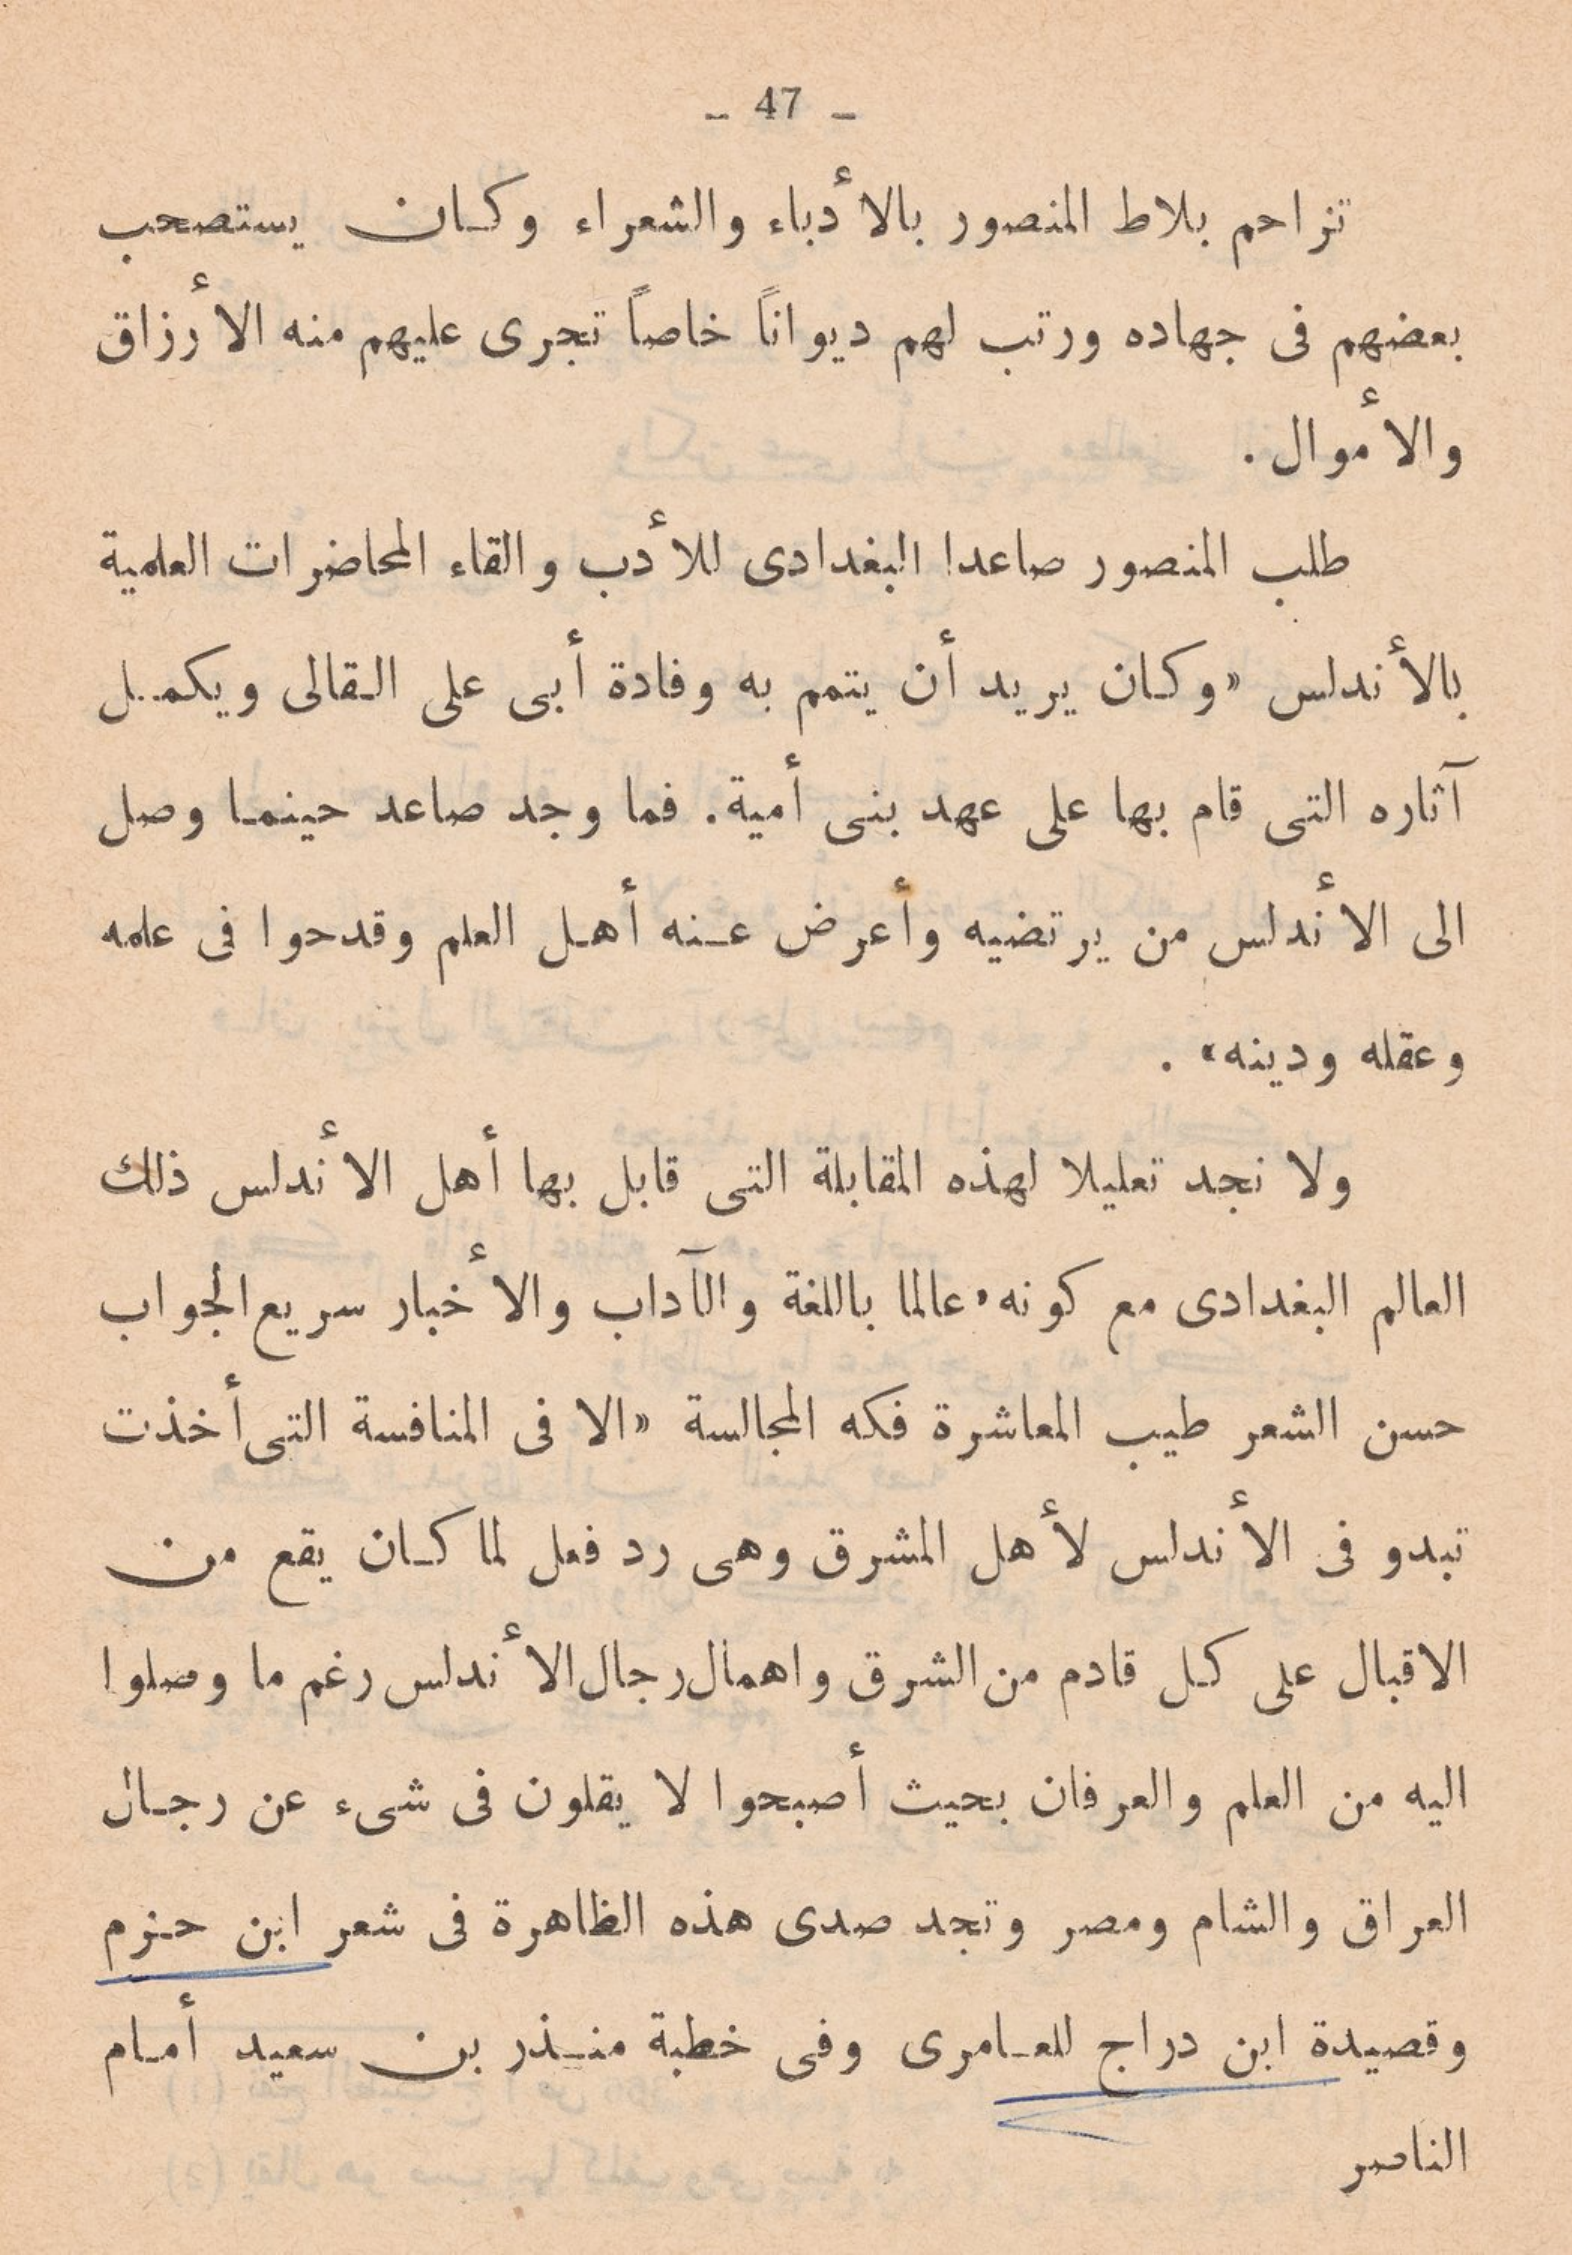 ـ 47 ـ
تزاحم بلاط المنصور بالأدباء والشعراء وكان يستصحب
بعضهم فى جهاده ورتب لهم ديواناً خاصاً تجرى عليهم منه الأرزاق
والأموال .
طلب المنصور صاعدا البغدادى للأدب والقاء المحاضرات العلمية
بالأندلس «وكان يريد أن يتمم به وفادة أبى على القالى ويكمل
آثاره التى قام بها على عهد بنى أمية. فما وجد صاعد حينما وصل
الى الأندلس من يرتضيه وأعرض عنه أهل العلم وقدحوا فى علمه
وعقله ودينه» .
ولا نجد تعليلا لهذه المقابلة التى قابل بها أهل الأندلس ذلك
العالم البغدادى مع كونه «عالما باللغة والآداب والأخبار سريع الجواب
حسن الشعر طيب المعاشرة فكه المجالسة » الا فى المنافسة التى أخذت
تبدو فى الأندلس لأهل المشرق وهى رد فعل لما كان يقع من
الاقبال على كل قادم من الشرق واهمال رجال الأندلس رغم ما وصلوا
اليه من العلم والعرفان بحيث أصبحوا لا يقلون فى شىء عن رجال
العراق والشام ومصر وتجد صدى هذه الظاهرة فى شعر ابن حزم
وقصيدة ابن دراج للعامرى وفى خطبة منذر بن سعيد أمام
الناصر